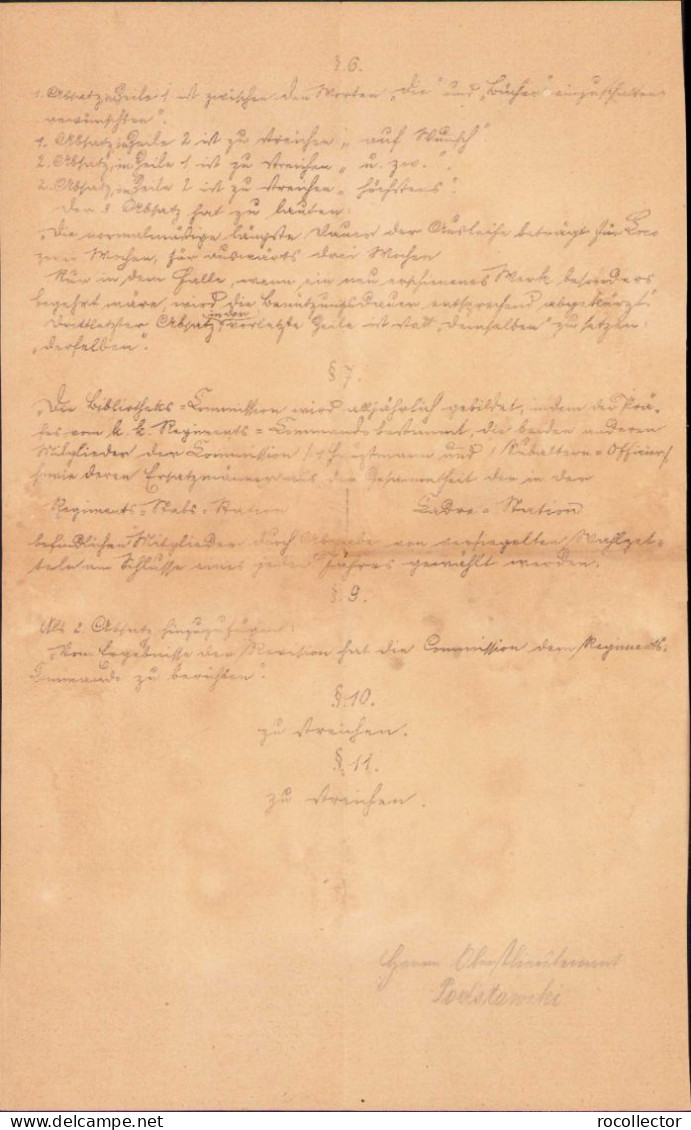 §.6.
1. Absatz, Zeile 1 ist zwischen den Worten „die“ und „Bücher“ einzuschalten
„gewünschten“.
1. Absatz, in Zeile 2 ist zu streichen „auf Wunsch“
2. Absatz, in Zeile 1 ist zu streichen „u. zw.“.
2. Absatz, in Zeile 2 ist zu streichen „höchstens“.
Der 3. Absatz hat zu lauten:
„Die normalmäßige längste Dauer der Ausleihe beträgt für Loco
zwei Wochen, für auswärts drei Wochen
Nur in dem Falle, wenn ein neu erschienenes Werk besonders
begehrt wäre, wird die Benützungsdauer entsprechend abgekürzt“
Drittletzter Absatz, in der vorletzte Zeile ist statt „demselben“ zu setzen:
„derselben“.
§ 7.
„Die Bibliotheks=Commission wird alljährlich gebildet, indem der Prä-
ses vom k. k. Regiments=Commando bestimmt, die beiden anderen
Mitglieder der Commission /1 Hauptmann und 1 Subaltern=Officier/
sowie deren Ersatzmänner aus der Gesammtheit der in der
Regiments=Stabs=Station Cadre=Station
befindlichen Mitglieder durch Abgabe von versiegelten Wahlzet-
teln am Schlusse eines jeden Jahres gewählt werden.
§.9.
Als 2. Absatz hinzuzufügen:
„Vom Ergebnisse der Revision hat die Commission dem Regiments-
Commando zu berichten“.
§.10.
zu streichen.
§.11.
zu streichen.
Herrn Oberstlieutenant
Podstawski
rocollector